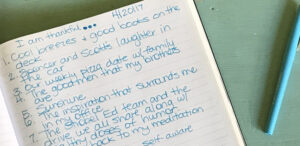 4/2017
I am thankful...
1. Cool breezes + good books on the
deck
2. Spencer and Scott's laughter in
the car
3. Our weekly pizza date w/family
4. The good men that my brothers
are
5. Sunshine
6. The inspiration that surrounds me
in my office
7. The School Ed team and the
drive we all share along w/
healthy doses of humor
back to my meditation
self aware